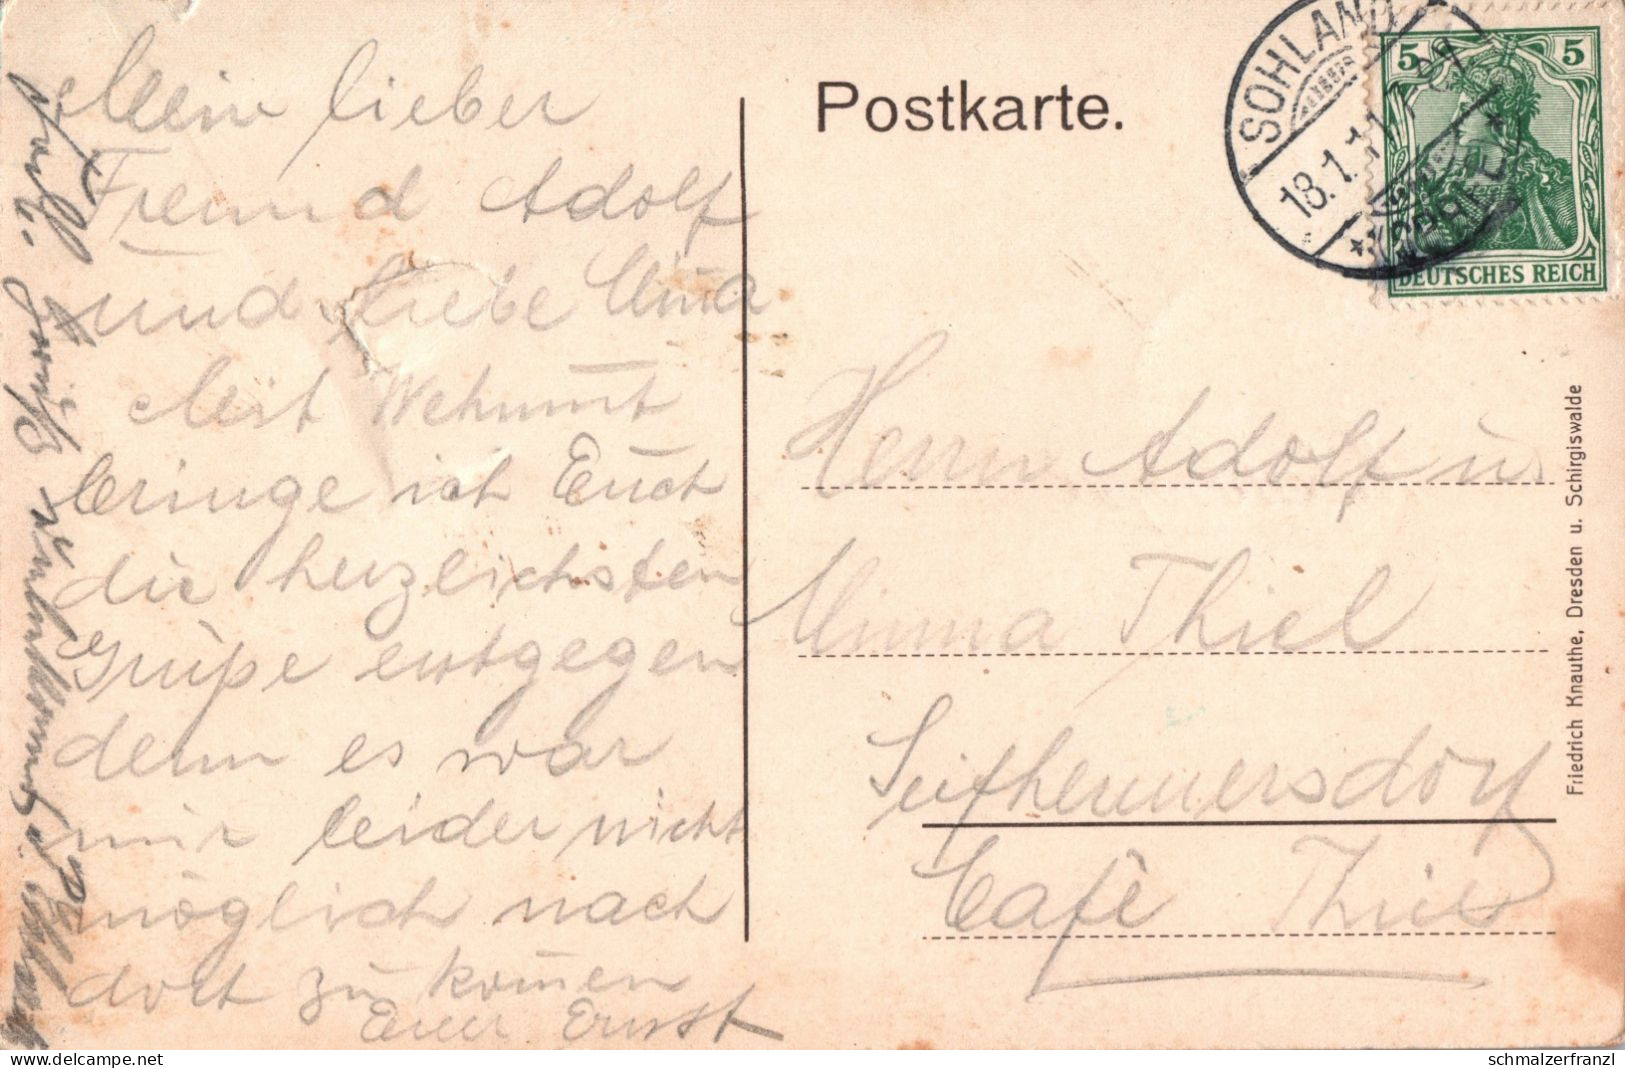 Mein lieber
Freund Adolf
und liebe Minna
Mit Wehmut
bringe ich Euch
die herzlichsten
Grüße entgegen
denn es war
mir leider nicht
möglich nach
dort zu kom̄en
Euer Ernst
Postkarte.
SOHLAND
18.1.11.
* (SPREE) *
5 5
DEUTSCHES REICH
Herrn Adolf u.
Minna Thiel
Seifhennersdorf
Café Thiel
Friedrich Knauthe, Dresden u. Schirgiswalde
schmalzerfranzl